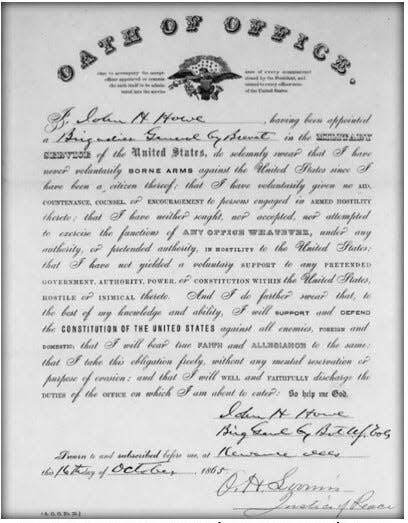 OATH OF OFFICE.
(One to accompany the accept-
ance of every commission
officer appointed or commis-
issued by the President, and
the
itted into the service
United States.
I, John H Howe, having been appointed
a Brigadier General by Brevet in the MILITARY
SERVICE of the United States, do solemnly swear that I have
never voluntarily BORNE ARMS against the United States since I
have been a citizen thereof; that I have voluntarily given no AID,
COUNTENANCE, COUNSEL, or ENCOURAGEMENT to persons engaged in ARMED HOSTILITY
thereto; that I have neither sought, nor accepted, nor attempted
to exercise the functions of ANY OFFICE WHATEVER, under any
authority, or pretended authority, IN HOSTILITY to the United States;
that I have not yielded a voluntary SUPPORT to any PRETENDED
GOVERNMENT, AUTHORITY, POWER, or CONSTITUTION WITHIN the United States,
HOSTILE or INIMICAL thereto. And I do further swear that, to
the best of my knowledge and ability, I will SUPPORT and DEFEND
the CONSTITUTION OF THE UNITED STATES against all enemies, FOREIGN and
DOMESTIC; that I will bear true FAITH and ALLEGIANCE to the same;
that I take this obligation freely, without any mental reservation or
purpose of evasion; and that I will WELL and FAITHFULLY discharge the
DUTIES OF THE OFFICE on which I am about to enter: So help me God.
John H Howe
Brig Genl by Bvt
Sworn to and subscribed before me, at Kewanee Ills
this 16th day of October, 1865
Justice of Peace